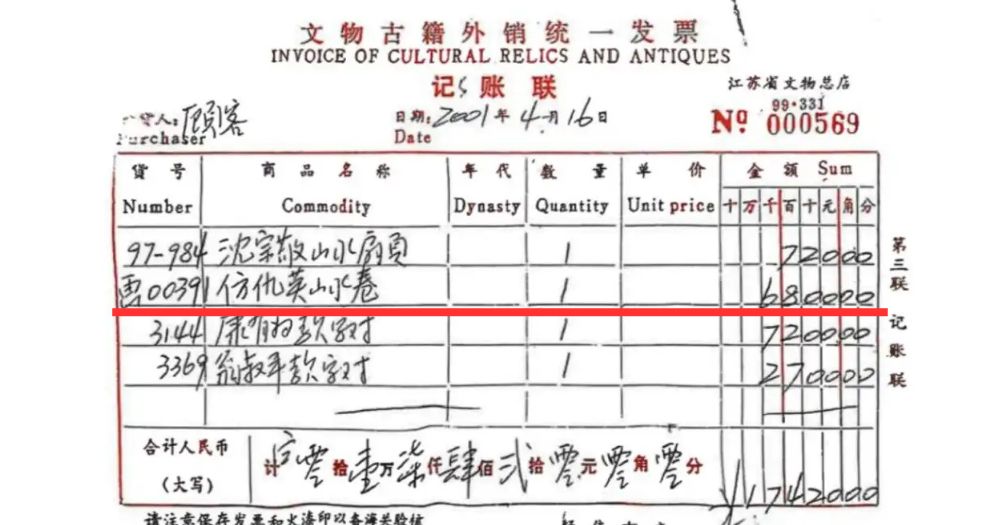 文物古籍外销统一发票
INVOICE OF CULTURAL RELICS AND ANTIQUES
记账联
江苏省文物总店
99·331
货人：顾客 日期：2001年4月16日 Nº 000569
Purchaser Date
货号 商品名称 年代 数量 单价 金额 Sum
Number Commodity Dynasty Quantity Unit price 十万千百十元角分
97-984 沈宗敬山水扇页 1 72000
曹00391 仿仇英山水卷 1 680000
3144 康有为款字对 1 720000
3369 翁叔平款字对 1 270000
合计人民币 计 零拾壹万柒仟肆佰贰拾零元零角零分 ¥1742000
（大写）
第三联 记账联
请注意保存发票和火漆印以备海关验核